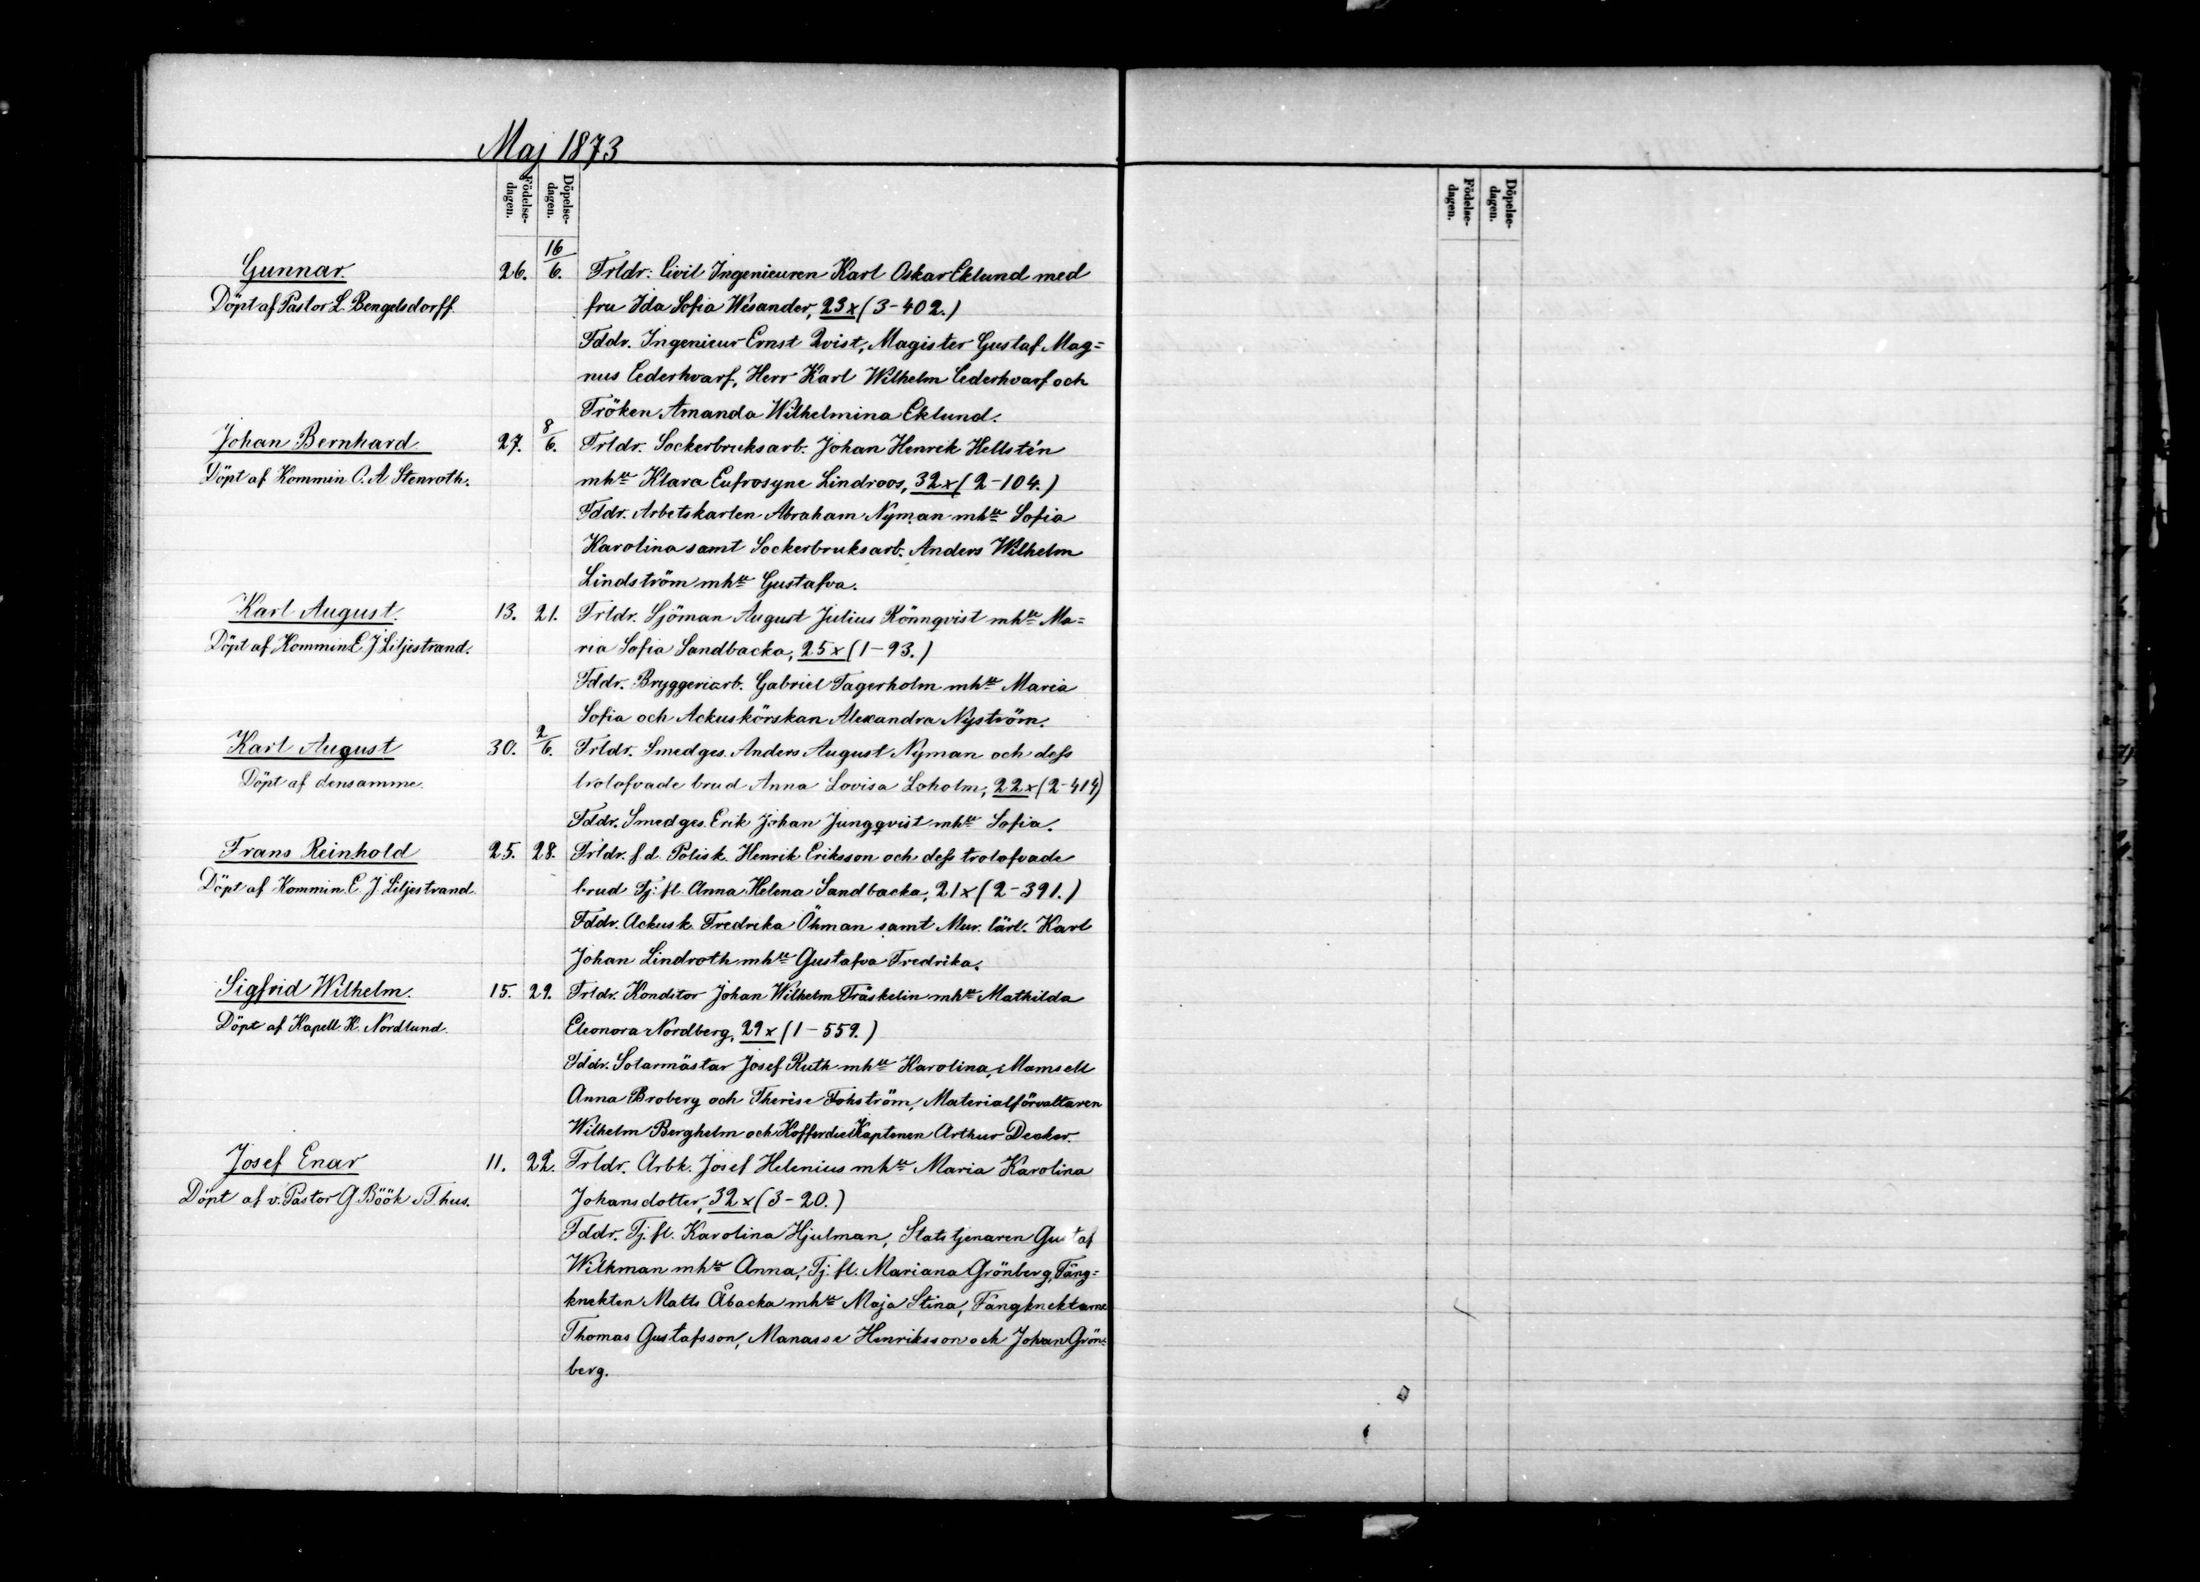 Maj 1873
Födelse-dagen. Döpelse-dagen.
Födelse-dagen. Döpelse-dagen.
Gunnar. 26. 16/6. Frldr: Civil Ingenieuren Karl Oskar Eklund med
Döpt af Pastor L. Bengelsdorff. fru Ida Sofia Wésander, 23 x (3-402.)
Fddr. Ingenieur Ernst Qvist, Magister Gustaf Mag=
nus Cederhvarf, Herr Karl Wilhelm Cederhvarf och
Fröken Amanda Wilhelmina Eklund.
Johan Bernhard 27. 8/6. Frldr. Sockerbruksarb. Johan Henrik Hellstén
Döpt af Kommin C. A Stenroth. mhu Klara Eufrosyne Lindroos, 32 x (2-104.)
Fddr. Arbetskarlen Abraham Nyman mhu Sofia
Karolina samt Sockerbruksarb. Anders Wilhelm
Lindström mhu Gustafva.
Karl August. 13. 21. Frldr. Sjöman August Julius Rönnqvist mhu Ma=
Döpt af Kommin E. J Liljestrand. ria Sofia Sandbacka, 25 x (1-93.)
Fddr. Bryggeriarb. Gabriel Fagerholm mhu Maria
Sofia och Ackuskörskan Alexandra Nyström.
Karl August 30. 2/6. Frldr. Smedges. Anders August Nyman och dess
Döpt af densamme. trolofvade brud Anna Lovisa Loholm, 22 x (2-414)
Fddr. Smedges. Erik Johan Jungqvist mhu Sofia.
Frans Reinhold 25. 28. Frldr. f d. Polisk. Henrik Eriksson och dess trolofvade
Döpt af Kommin. E. J Liljestrand brud Tj: fl. Anna Helena Sandbacka, 21 x (2-391.)
Fddr. Ackusk. Fredrika Öhman samt Mur. lärl. Karl
Johan Lindroth mhu Gustafva Fredrika.
Sigfrid Wilhelm. 15. 29. Frldr. Konditor Johan Wilhelm Fräskelin mhu Mathilda
Döpt af Kapell. K. Nordlund. Eleonora Nordberg, 29 x (1-559.)
Fddr. Sotarmästar Josef Ruth mhu Karolina, Mamsell
Anna Broberg och Therèse Fohström, Materialförvaltaren
Wilhelm Bergholm och Kofferdie Kaptenen Arthur Decker.
Josef Enar 11. 22. Frldr. Arbk. Josef Helenius mhu Maria Karolina
Döpt af v. Pastor G Böök i T. hus. Johansdotter, 32 x (3-20.)
Fddr. Tj. fl. Karolina Hjulman, Statstjenaren Gustaf
Wilkman mhu Anna, Tj: fl. Mariana Grönberg, Fång=
knekten Matts Åbacka mhu Maja Stina, Fångknektarne
Thomas Gustafsson, Manasse Henriksson och Johan Grön=
berg.